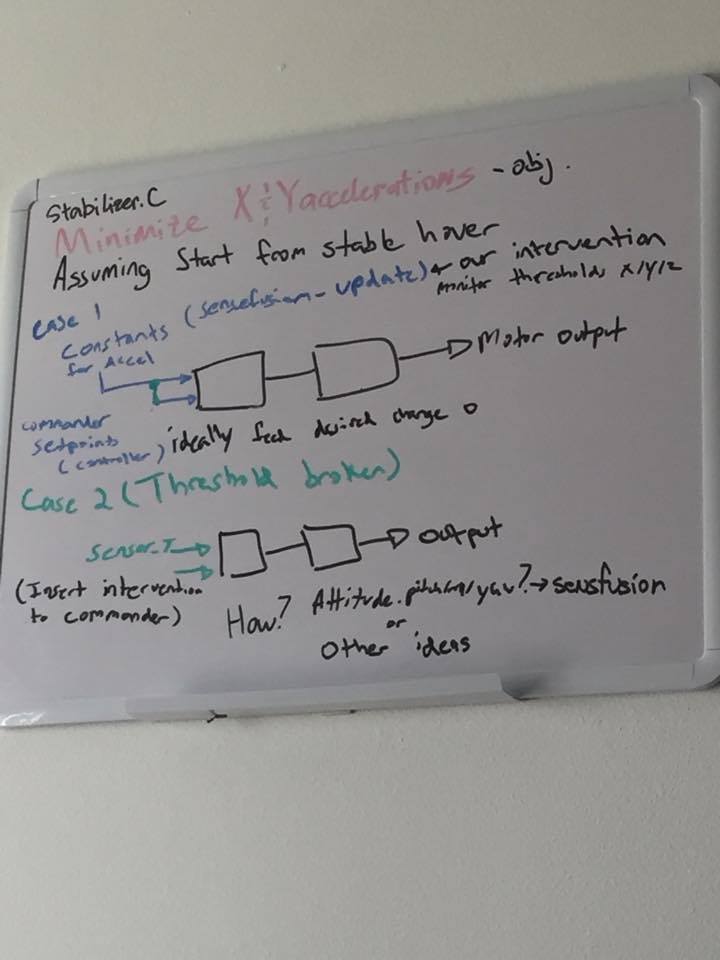 Stabilizer.C
Minimize X & Y accelerations - obj.
Assuming Start from stable hover
Case 1
Constants (sensefusion-update) + our intervention
for Accel
monitor thresholds X/Y/Z
Motor output
commander
setpoints
(controller)
ideally feed desired change 0
Case 2 (Threshold broken)
Sensor_T
output
(Insert intervention
to commander)
How? Attitude.pitch/ /yaw? → sensfusion
or
Other ideas